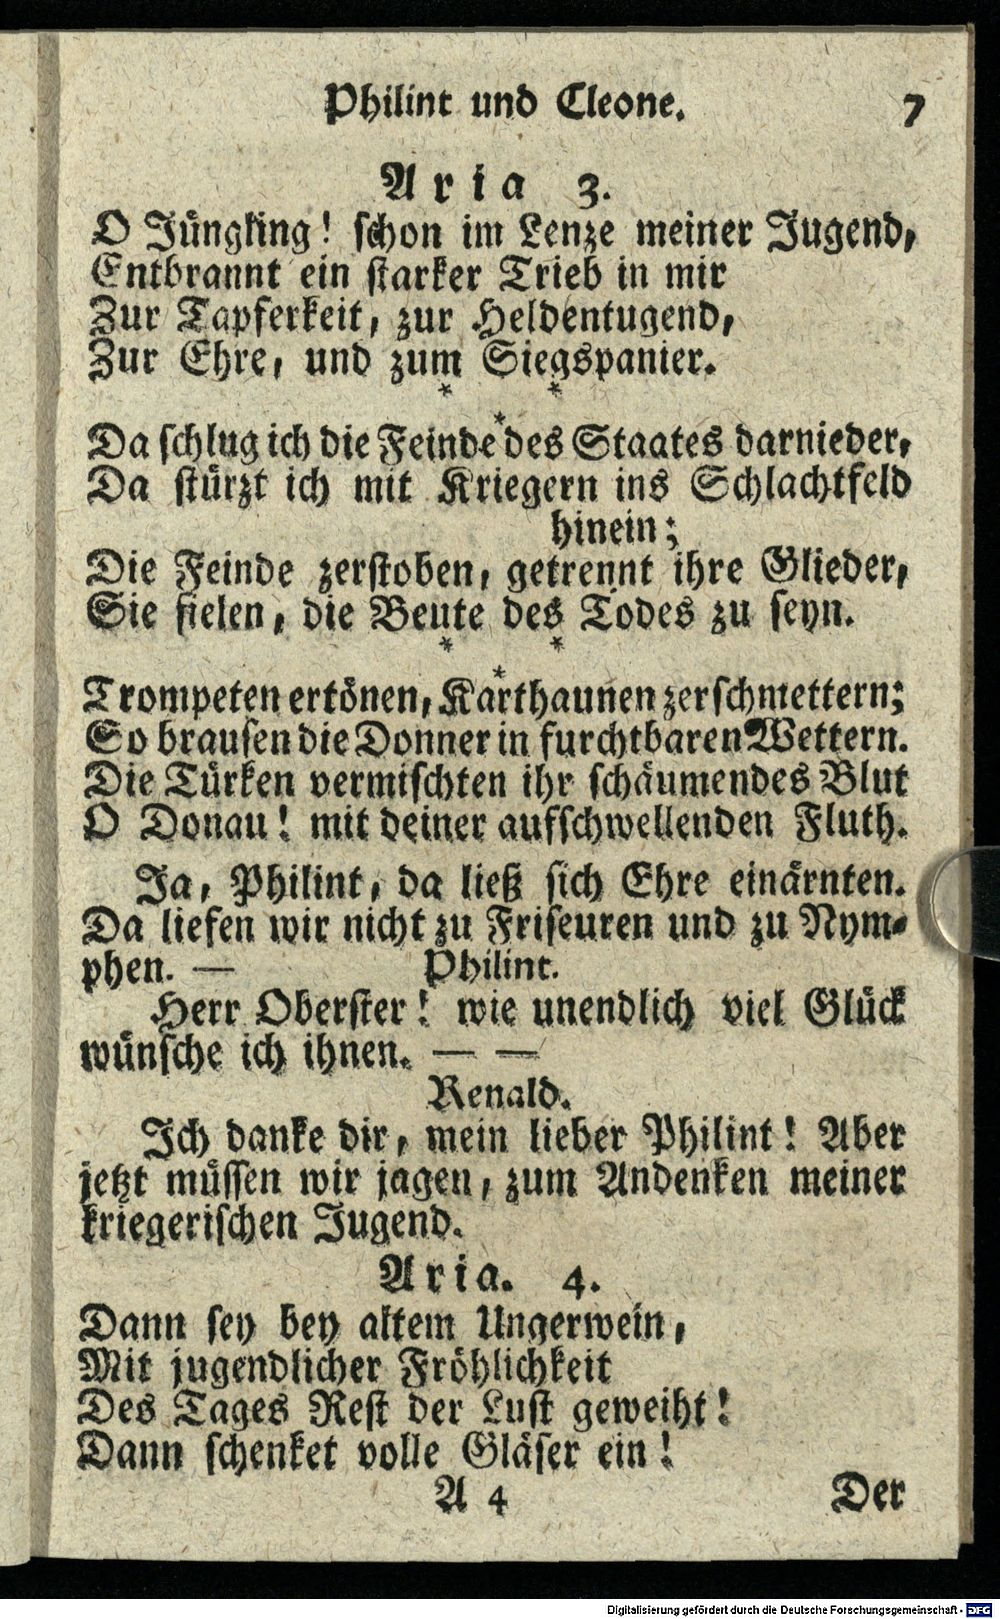 Philint und Cleone. 7
Aria 3.
O Jüngling! schon im Lenze meiner Jugend,
Entbrannt ein starker Trieb in mir
Zur Tapferkeit, zur Heldentugend,
Zur Ehre, und zum Siegspanier.
* * *
Da schlug ich die Feinde des Staates darnieder,
Da stürzt ich mit Kriegern ins Schlachtfeld
hinein;
Die Feinde zerstoben, getrennt ihre Glieder,
Sie fielen, die Beute des Todes zu seyn.
* * *
Trompeten ertönen, Karthaunen zerschmettern;
So brausen die Donner in furchtbaren Wettern.
Die Türken vermischten ihr schäumendes Blut
O Donau! mit deiner aufschwellenden Fluth.
Ja, Philint, da ließ sich Ehre einärnten.
Da liefen wir nicht zu Friseuren und zu Nym-
phen. — Philint.
Herr Oberster! wie unendlich viel Glück
wünsche ich ihnen. — —
Renald.
Ich danke dir, mein lieber Philint! Aber
jetzt müssen wir jagen, zum Andenken meiner
kriegerischen Jugend.
Aria. 4.
Dann sey bey altem Ungerwein,
Mit jugendlicher Fröhlichkeit
Des Tages Rest der Lust geweiht!
Dann schenket volle Gläser ein!
A 4 Der
Digitalisierung gefördert durch die Deutsche Forschungsgemeinschaft - DFG